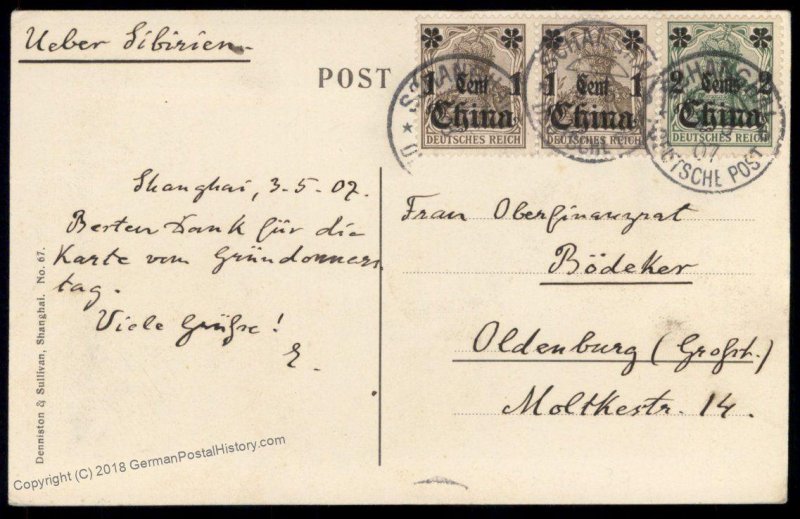 Ueber Sibirien
POST
1 Cent 1
China
DEUTSCHES REICH
1 Cent 1
China
DEUTSCHES REICH
2 Cents 2
China
DEUTSCHES REICH
SCHANGHAI
DEUTSCHE POST
Shanghai, 3-5-07.
Besten Dank für die
Karte vom Gründonners
tag.
Viele Grüße!
E.
Frau Oberfinanzrat
Bödeker
Oldenburg (Großh.)
Moltkestr. 14.
Denniston & Sullivan, Shanghai. No. 67.
Copyright (C) 2018 GermanPostalHistory.com